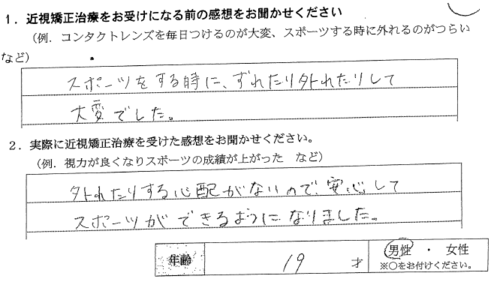 1．近視矯正治療をお受けになる前の感想をお聞かせください
（例．コンタクトレンズを毎日つけるのが大変、スポーツする時に外れるのがつらい
など）
スポーツをする時に、ずれたり外れたりして
大変でした。
2．実際に近視矯正治療を受けた感想をお聞かせください。
（例．視力が良くなりスポーツの成績が上がった　など）
外れたりする心配がないので、安心して
スポーツができるようになりました。
年齢 19 才 男性 ・ 女性
※○をお付けください。